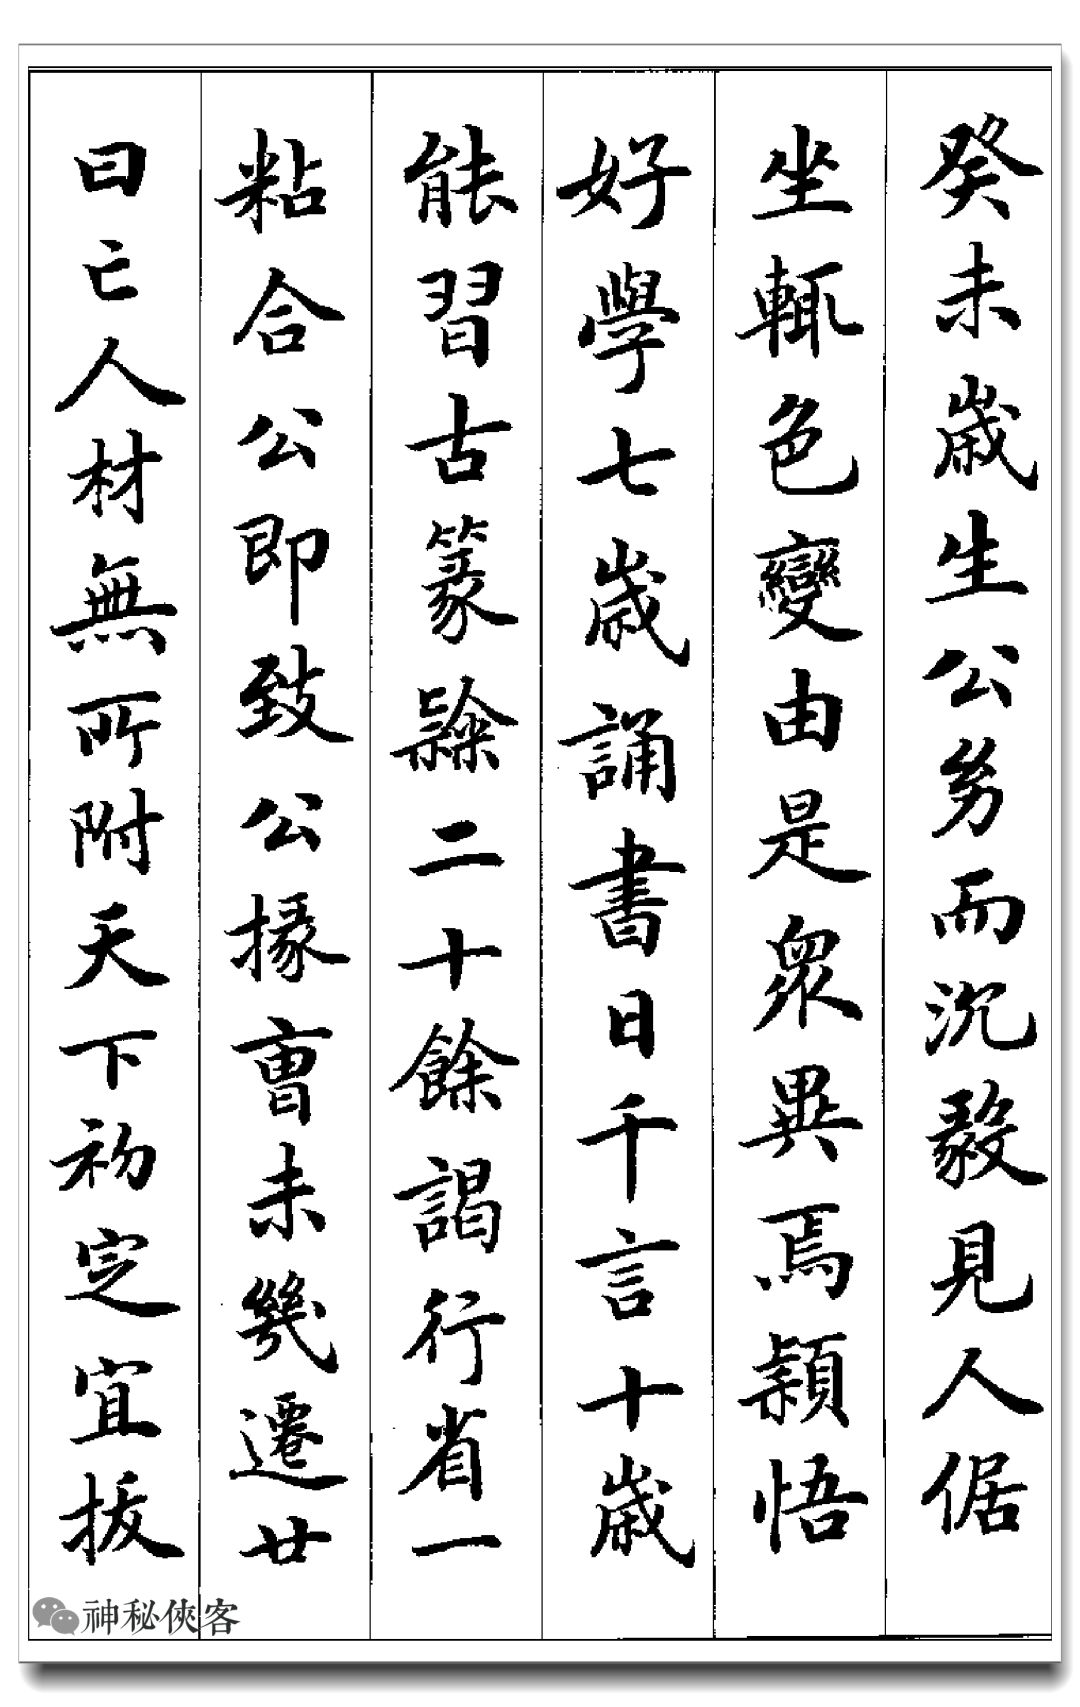 癸未歲生公㓜而沉毅見人倨
坐輒色變由是衆異焉穎悟
好學七歲誦書日千言十歲
能習古篆隸二十餘謁行省一
粘合公即致公掾曹未幾遷廿
曰亡人材無所附天下初定宜拔
神秘俠客